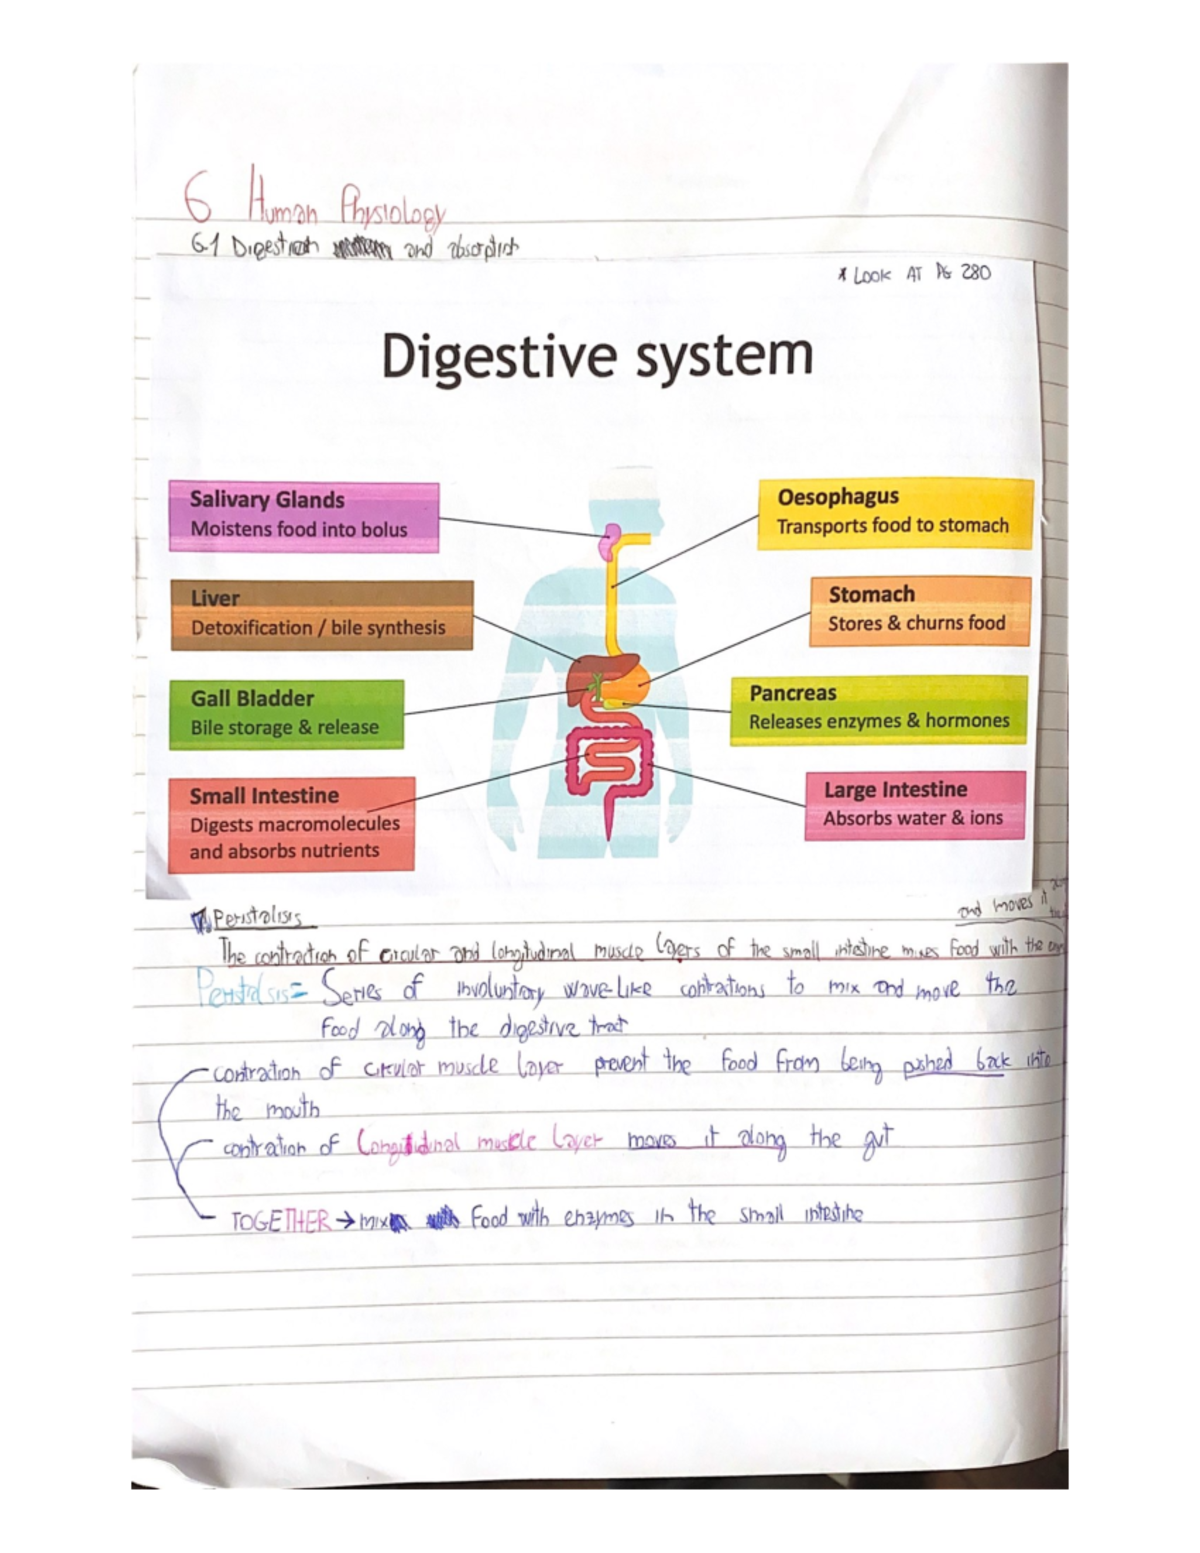 6 Human Physiology
6.1 Digestion and absorption
* Look AT PG 280
Digestive system
Salivary Glands
Moistens food into bolus
Oesophagus
Transports food to stomach
Liver
Detoxification / bile synthesis
Stomach
Stores & churns food
Gall Bladder
Bile storage & release
Pancreas
Releases enzymes & hormones
Small Intestine
Digests macromolecules
and absorbs nutrients
Large Intestine
Absorbs water & ions
Peristalsis
and moves it
The contraction of circular and longitudinal muscle layers of the small intestine mixes food with the
Peristalsis= Series of involuntary wave-like contrations to mix and move the
food along the digestive tract
contration of circular muscle layer prevent the food from being pushed back into
the mouth
contration of Longitudinal muscle Layer moves it along the gut
TOGETHER → mix food with enzymes in the small intestine